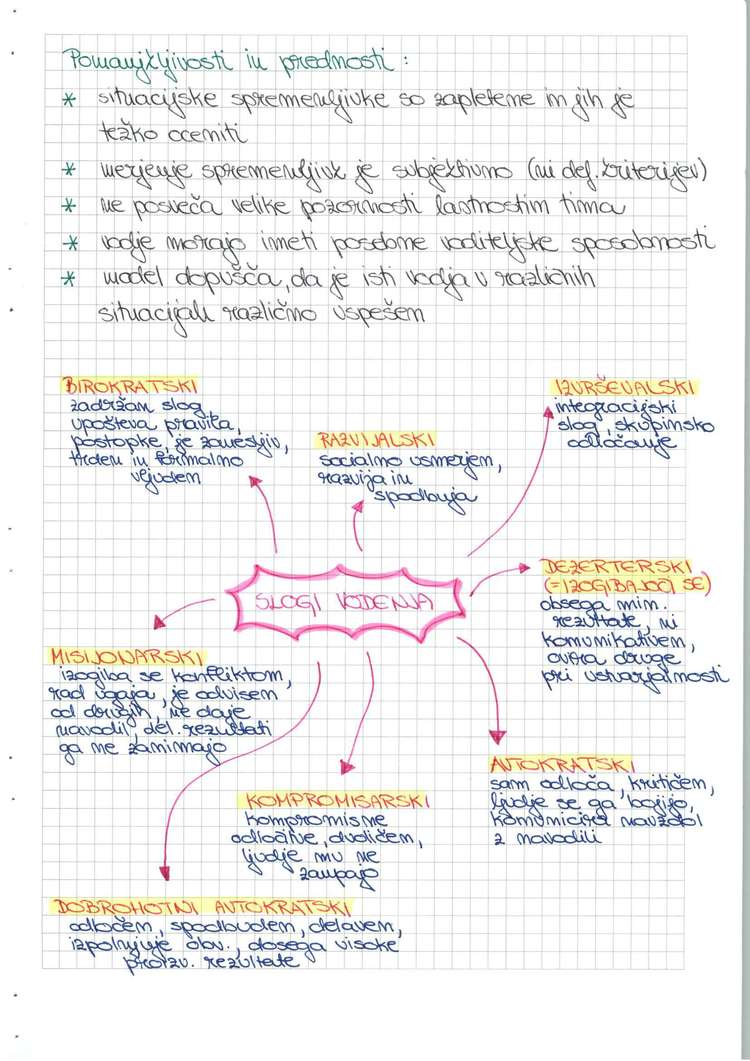 Pomanjkljivosti in prednosti:
* situacijske spremenljivke so zapletene in jih je
težko oceniti
* merjenje spremenljivk je subjektivno (ni def. kriterijev)
* ne posveča velike pozornosti lastnostim tima
* vodje morajo imeti posebne voditeljske sposobnosti
* model dopušča, da je isti vodja v različnih
situacijah različno uspešen
BIROKRATSKI
zadržan slog,
upošteva pravila,
postopke, je zanesljiv,
trden in formalno
vljuden
RAZVIJALSKI
socialno usmerjen,
razvija in
spodbuja
IZVRŠEVALSKI
integracijski
slog, skupinsko
odločanje
SLOGI VODENJA
DEZERTERSKI
(=IZOGIBAJOČI SE)
obsega min.
rezultate, ni
komunikativen,
ovira druge
pri ustvarjalnosti
MISIJONARSKI
izogiba se konfliktom,
rad ugaja, je odvisen
od drugih, ne daje
navodil, del. rezultati
ga ne zanimajo
AVTOKRATSKI
sam odloča, kritičen,
ljudje se ga bojijo,
komunicira navzdol
z navodili
KOMPROMISARSKI
kompromisne
odločitve, dvoličen,
ljudje mu ne
zaupajo
DOBROHOTNI AVTOKRATSKI
odločen, spodbuden, delaven,
izpolnjuje obv., dosega visoke
proizv. rezultate